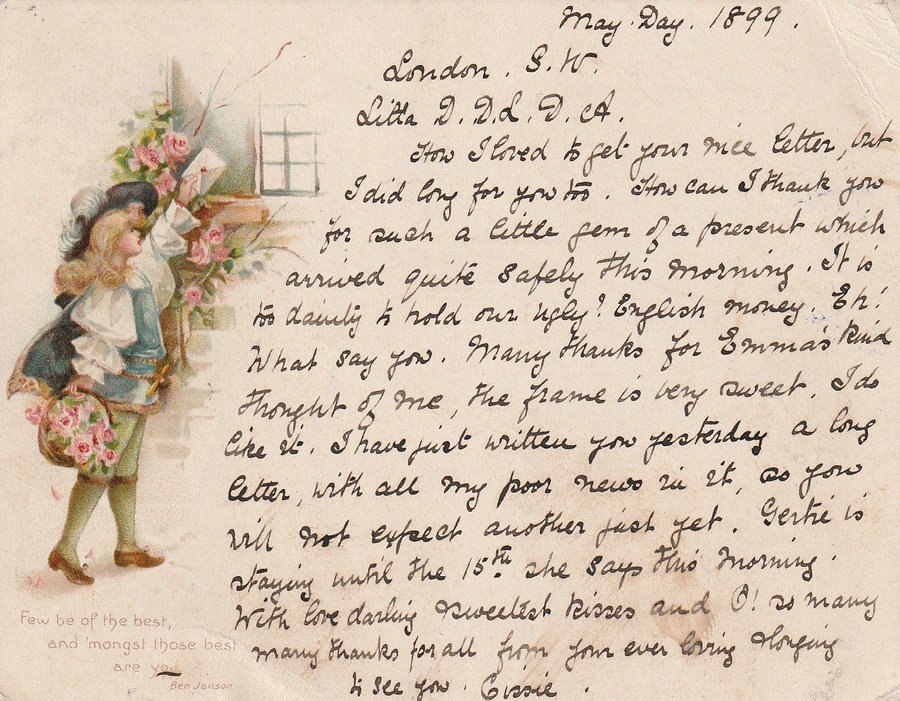 May. Day. 1899.
London. S. W.
Litta D. D. L. D. A.
How I loved to get your nice letter, but
I did long for you too. How can I thank you
for such a little gem of a present which
arrived quite safely this morning. It is
too dainty to hold our ugly? English money. Eh!
What say you. Many thanks for Emma's kind
thought of me, the frame is very sweet. I do
like it. I have just written you yesterday a long
letter, with all my poor news in it, so you
will not expect another just yet. Gertie is
staying until the 15th she says this morning.
With love darling sweetest kisses and O! so many
many thanks for all from your ever loving & longing
to see you. Cissie.
Few be of the best,
and 'mongst those best
are you.
Ben Jonson